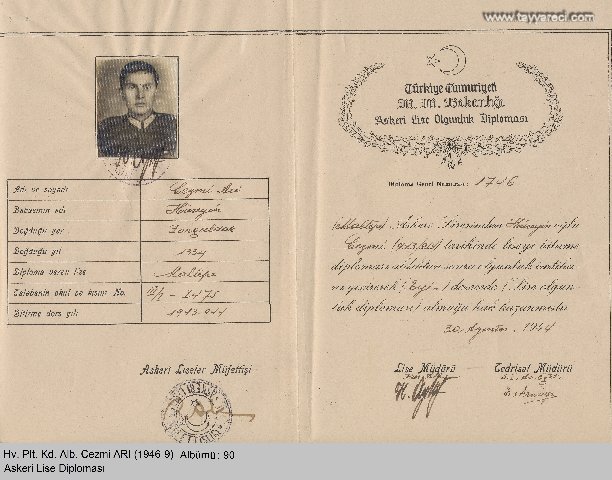 www.tayyareci.com
Türkiye Cumuriyeti
M. M. Vekarlığı
Askeri Lise Olgunluk Diploması
Diploma Genel Numarası: 1746
Adı ve soyadı Cezmi Arı
Babasının adı Hüseyin
Doğduğu yer Zonguldak
Doğduğu yıl
Diploma veren lise Maltepe
Talebenin okul ve kısım No.
Bitirme ders yılı 1943-944
Askerî Lisesinden Hüseyin oğlu
Cezmi tarihinde liseyi bitirme
diploması aldıktan sonra olgunluk
derecede Lise olgun-
luk diploması almağa hak kazanmıştır
30 Ağustos. 1944
Askerî Liseler Müfettişi
Lise Müdürü Tedrisat Müdürü
Hv. Plt. Kd. Alb. Cezmi ARI (1946 9) Albümü: 90
Askeri Lise Diploması